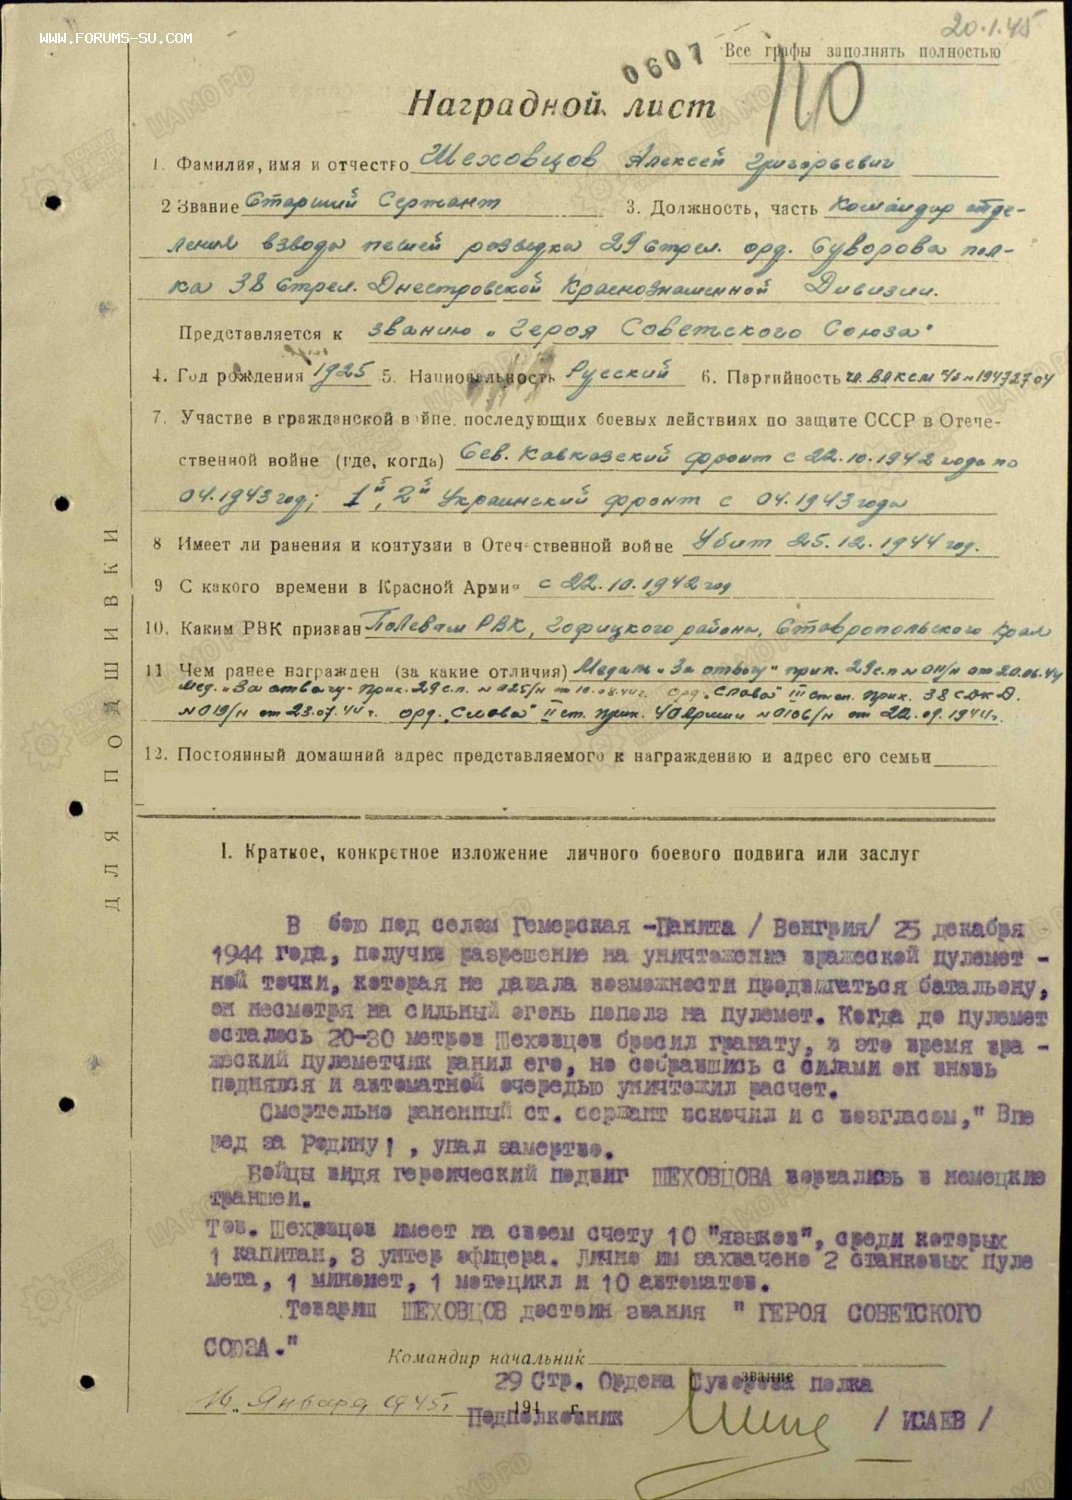 WWW.FORUMS-SU.COM
20.1.45
Все графы заполнять полностью
0607
110
Наградной лист
1. Фамилия, имя и отчество Шеховцов Алексей Григорьевич
2 Звание Старший Сержант 3. Должность, часть Командир отде-
ления взвода пешей разведка 29 Стрел. орд. Суворова пол-
ка 38 Стрел. Днестровской Краснознаменной Дивизии.
Представляется к званию „Героя Советского Союза"
4. Год рождения 1925 5. Национальность Русский 6. Партийность чл. ВЛКСМ ч/б №19472704
7. Участие в гражданской войне, последующих боевых действиях по защите СССР в Отече-
ственной войне (где, когда) Сев. Кавказский фронт с 22.10.1942 года по
04.1943 год; 1й, 2й Украинский фронт с 04.1943 года
8 Имеет ли ранения и контузии в Отечественной войне Убит 25.12.1944 год.
9 С какого времени в Красной Армии с 22.10.1942 год
10. Каким РВК призван Полевым РВК, Гофицкого района, Ставропольского Края
11 Чем ранее награжден (за какие отличия) Медаль „За отвагу" прик. 29 с.п. № 011/н от 20.06.44
мед. „За отвагу" прик. 29 с.п. № 025/н от 10.08.44 г. орд. „Слава" III степ. прик. 38 СДКД.
№ 019/н от 23.07.44 г. орд. „Слава" II ст. прик. 40 Армии № 0106/н от 22.09.1944 г.
12. Постоянный домашний адрес представляемого к награждению и адрес его семьи
ДЛЯ ПОДШИВКИ
I. Краткое, конкретное изложение личного боевого подвига или заслуг
В бою под селом Гемерская -Панита / Венгрия/ 25 декабря
1944 года, получив разрешение на уничтожение вражеской пулемет -
ной точки, которая не давала возможности продвигаться батальону,
он несмотря на сильный огонь пополз на пулемет. Когда до пулемет
осталось 20-30 метров Шеховцов бросил гранату, в это время вра -
жеский пулеметчик ранил его, но собравшись с силами он вновь
поднялся и автоматной очередью уничтожил расчет.
Смертельно раненный ст. сержант вскочил и с возгласом," Впе
ред за Родину! , упал замертво.
Бойцы видя героический подвиг ШЕХОВЦОВА ворвались в немецкие
траншеи.
Тов. Шеховцов имеет на своем счету 10 "языков", среди которых
1 капитан, 3 унтер офицера. Лично им захвачено 2 станковых пуле
мета, 1 миномет, 1 мотоцикл и 10 автоматов.
Товарищ ШЕХОВЦОВ достоин звания " ГЕРОЯ СОВЕТСКОГО
СОЮЗА."
Командир начальник
звание
29 Стр. Ордена Суворова полка
16 „ Января 1945 г 194 г.
Подполковник / ИСАЕВ /